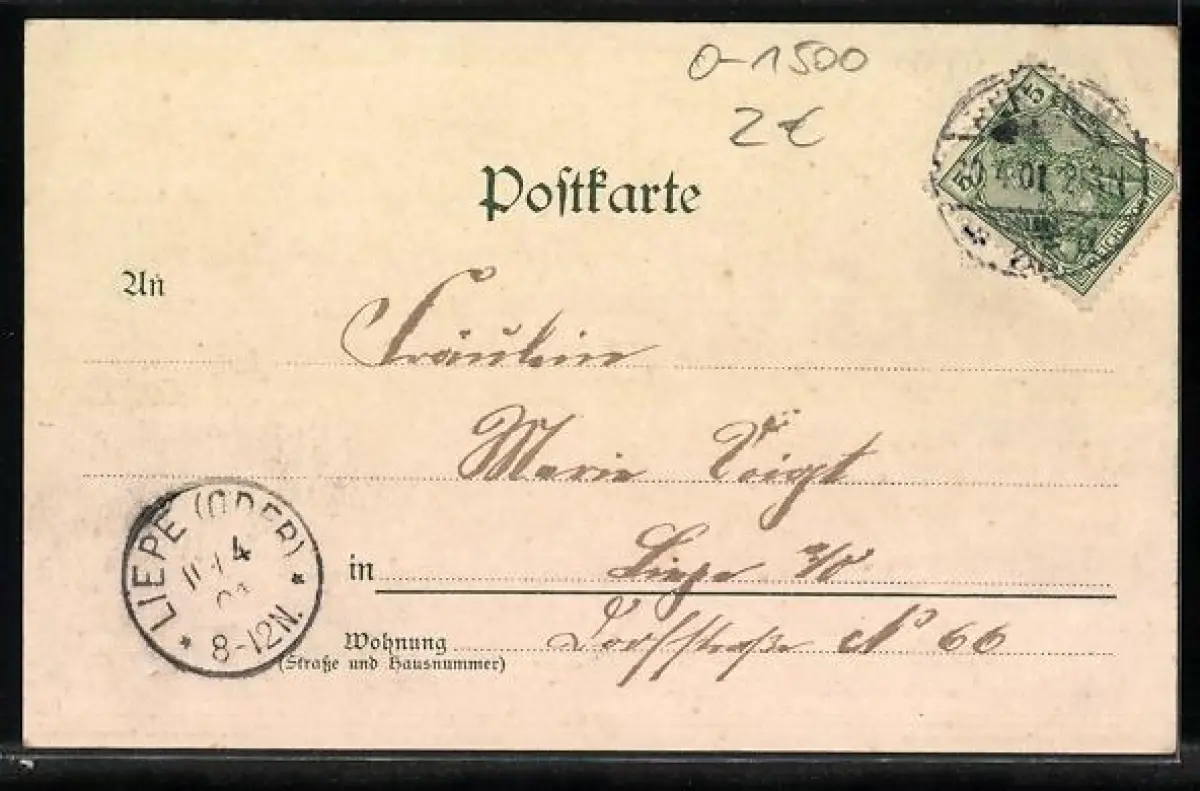 0-1500
2€
Postkarte
5
4.01
An
Fräulein
Marie Voigt
in Liepe a/O
Wohnung Dorfstraße No 66
(Straße und Hausnummer)
LIEPE (ODER)
4
8-12N.